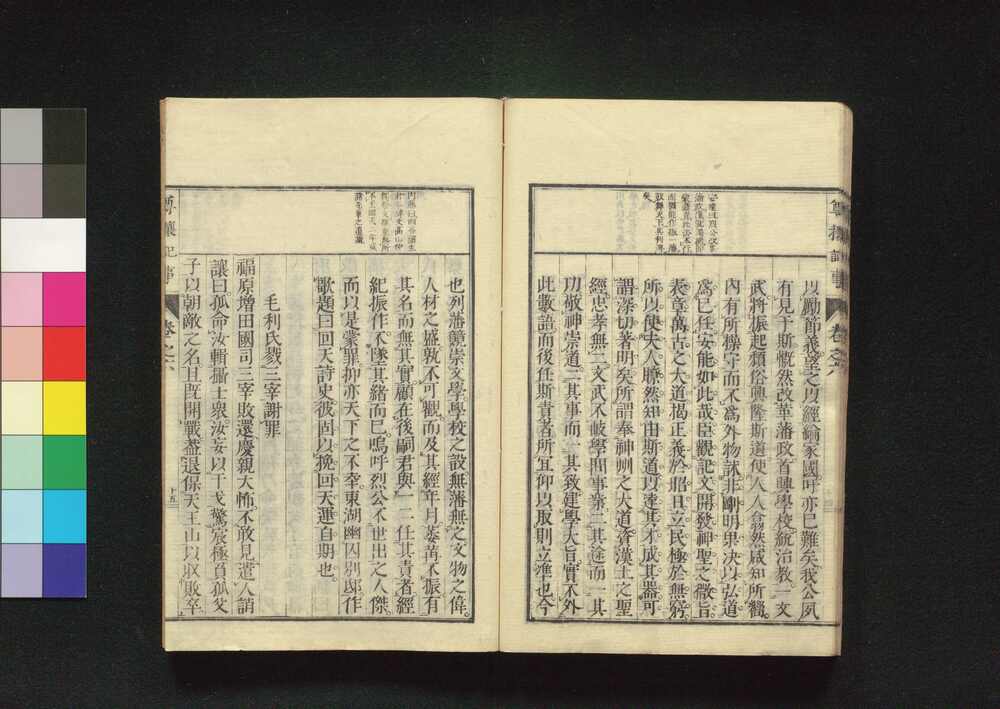 以勵節義望之以經綸家國吁亦已難矣我公夙
有見于斯慨然改革藩政首興學校統治教一文
武將振起頽俗興隆斯道使人人翕然咸知所嚮
內有所操守而不爲外物訹非剛明果決以弘道
爲已任安能如此哉臣觀記文開發神聖之微旨
表章萬古之大道揭正義於昭旦立民極於無窮
所以使夫人瞭然知由斯道以達其才成其器可
謂深切著明矣所謂奉神州之大道資漢土之聖
經忠孝無二文武不岐學問事業二其途而一其
功敬神崇道二其事而一其致建學大旨實不外
此數語而後任斯責者所宜仰以取則立準也今
也列藩競崇文學學校之設無藩無之文物之偉
人材之盛孰不可觀而及其經年月萎苒不振有
其名而無其實顧在後嗣君與一二任其責者經
紀振作不墜其緒而已嗚呼烈公不世出之人傑
而以是蒙罪抑亦天下之不幸東湖幽囚別邸作
歌題曰回天詩史彼固以挽回天運自期也
毛利氏戮三宰謝罪
福原增田國司三宰敗還慶親大怖不敢見遣人誚
讓曰孤命汝輯攝士衆汝妄以干戈驚宸極負孤父
子以朝敵之名且既開戰盍退保天王山以收敗卒
尊攘紀事
卷之六
十五